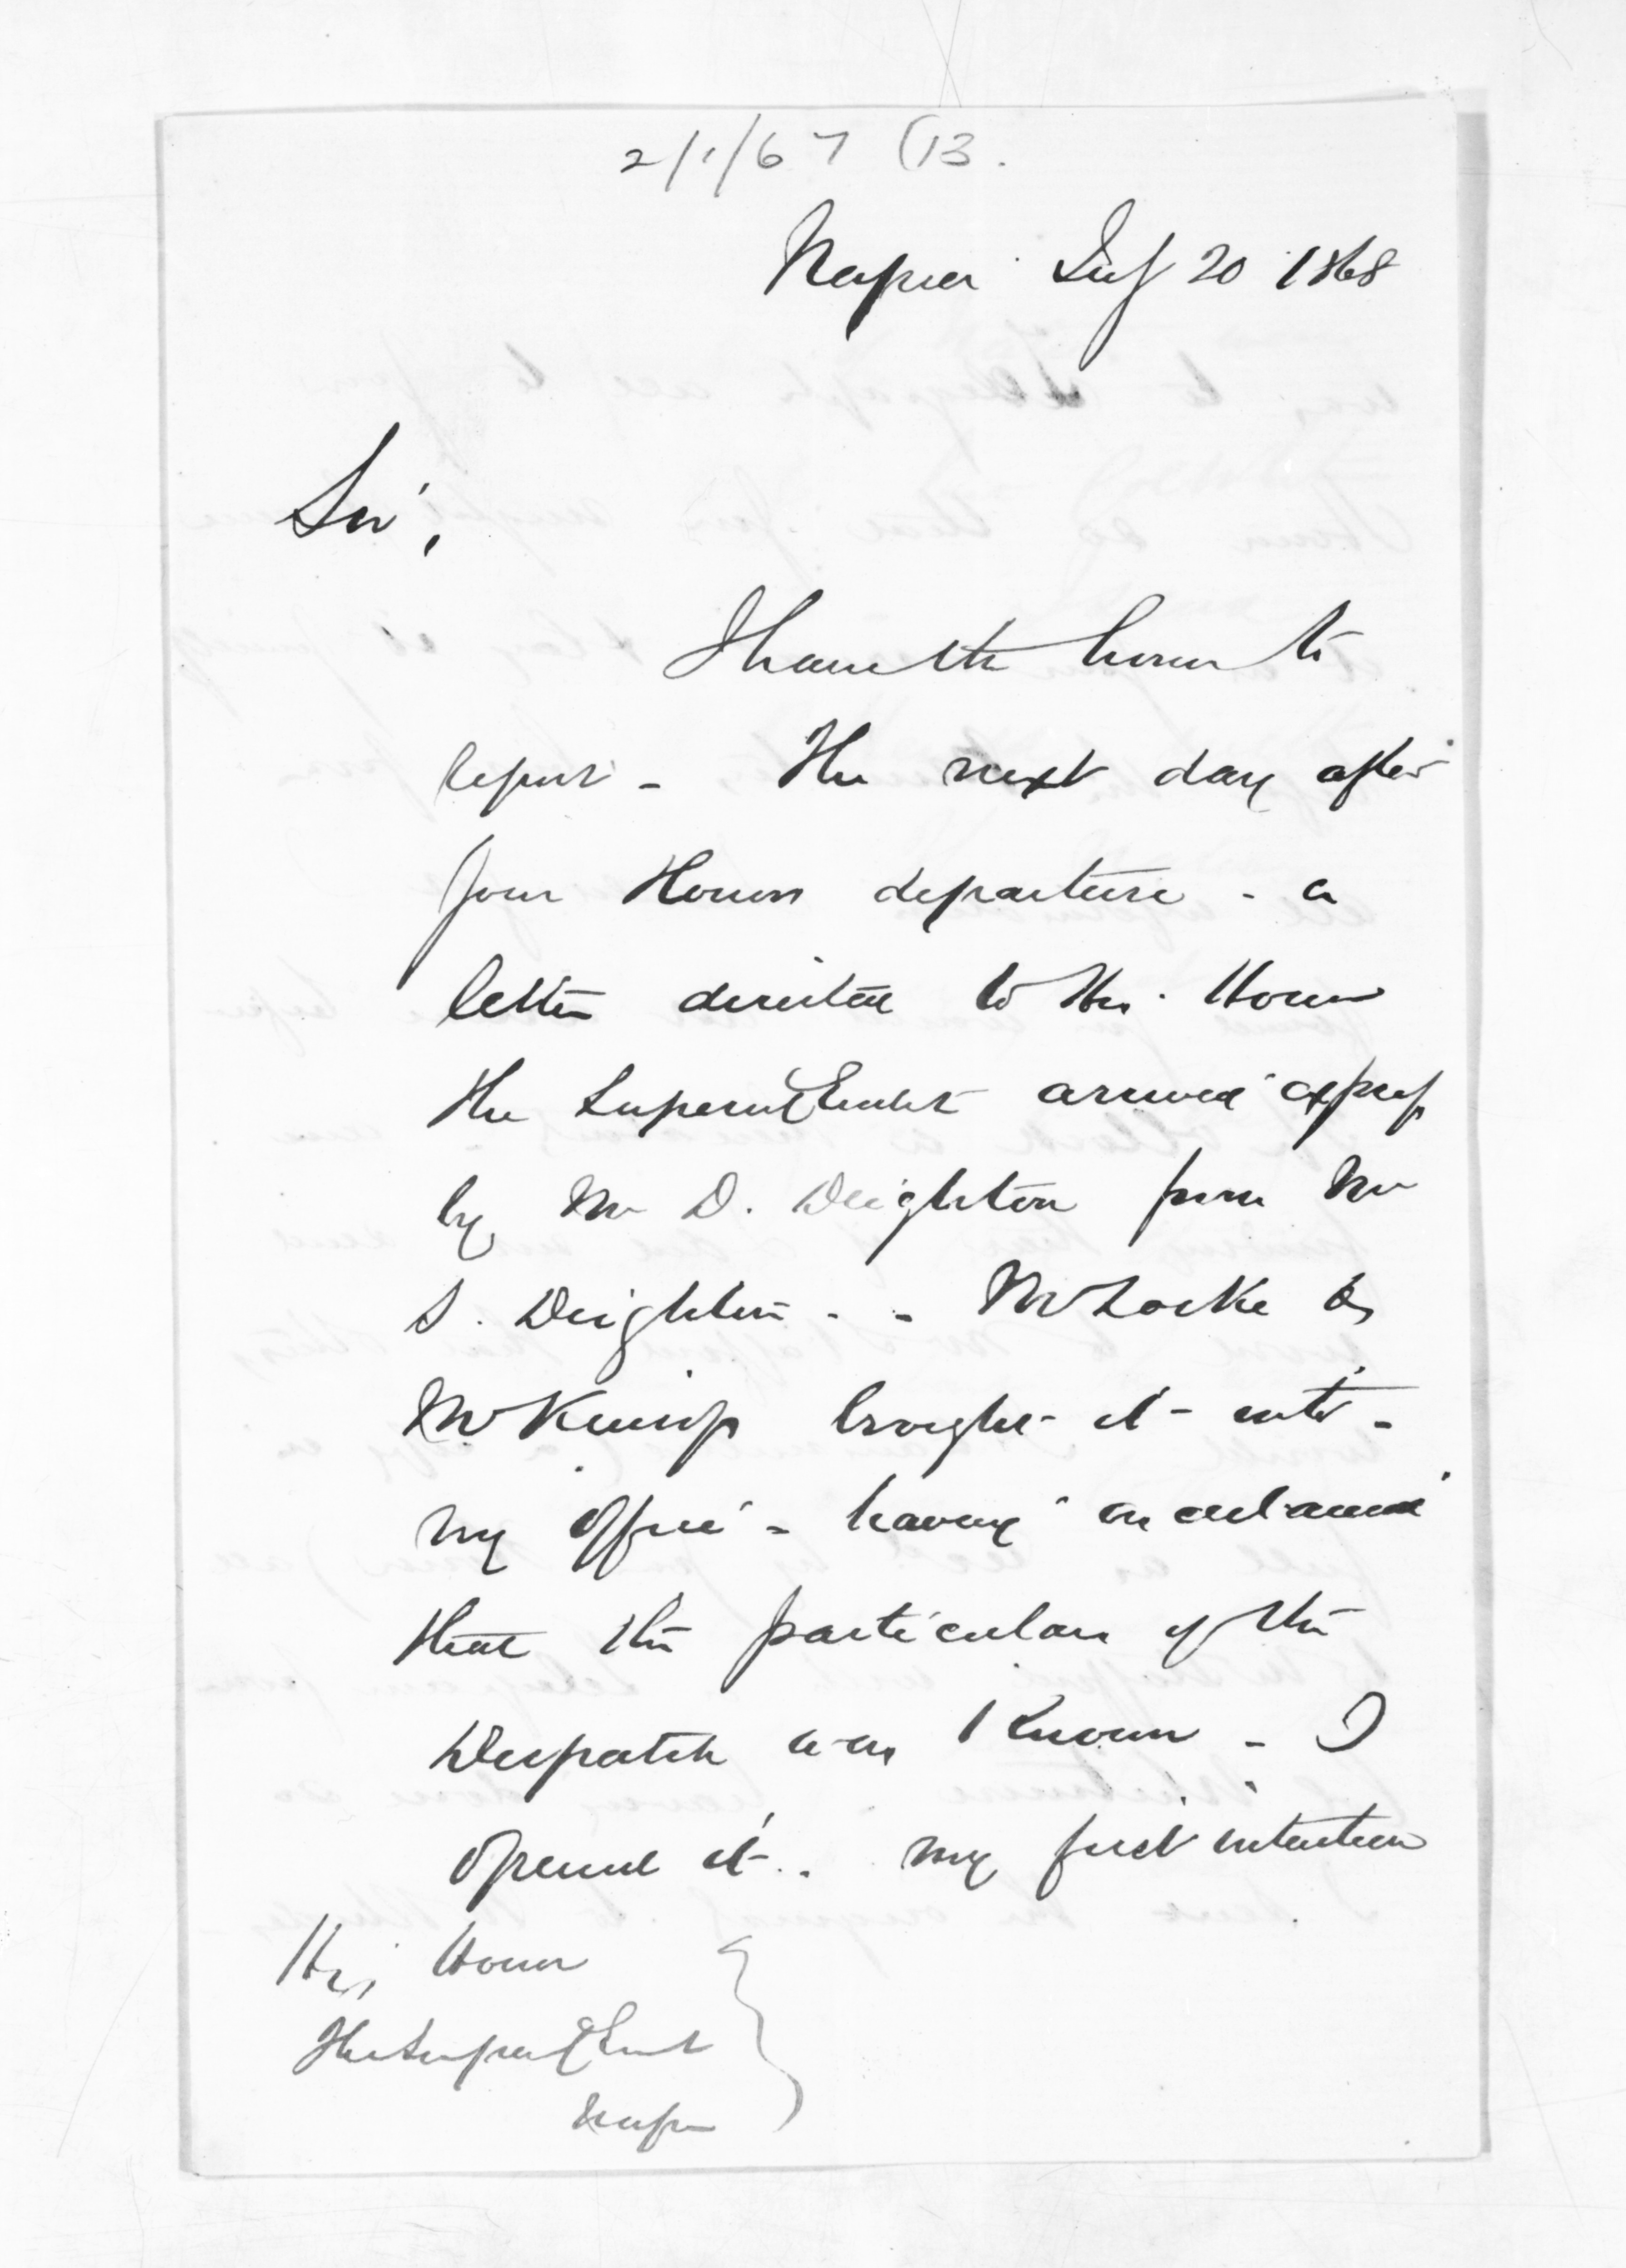 2/1/67 (13.
Napier July 20 1868
Sir,
I have the honor to
report - The next day after
your Honors departure - a
letter directed to His Honor
the Superintendent arrived express
by Mr D. Deighton from Mr
S. Deighton - - Mr Locke &
Mr Kinross brought it into -
my office - having ascertained
that the particulars of the
Despatch was known - I
opened it - my first intention
His Honor
The Superintendent
Napier